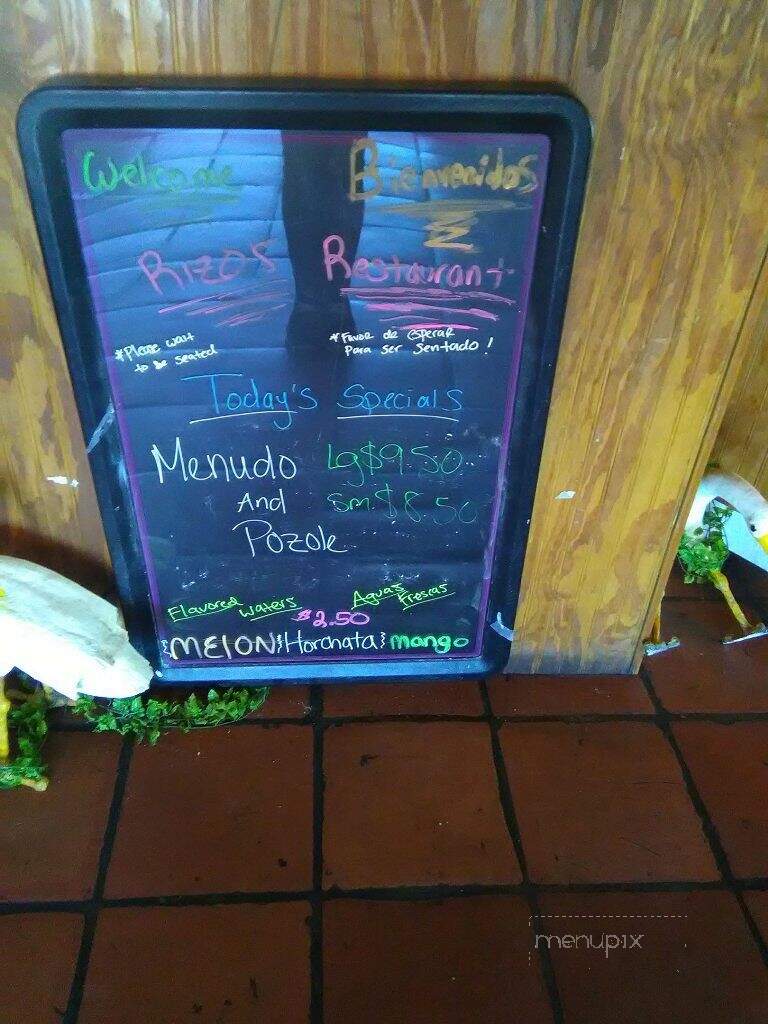 Welcome Bienvenidos
Rizos Restaurant
*Please wait to be seated
*Favor de esperar para ser sentado!
Today's Specials
Menudo Lg $9.50
And Sm. $8.50
Pozole
Flavored Waters Aguas Frescas
$2.50
MELON Horchata mango
menupix